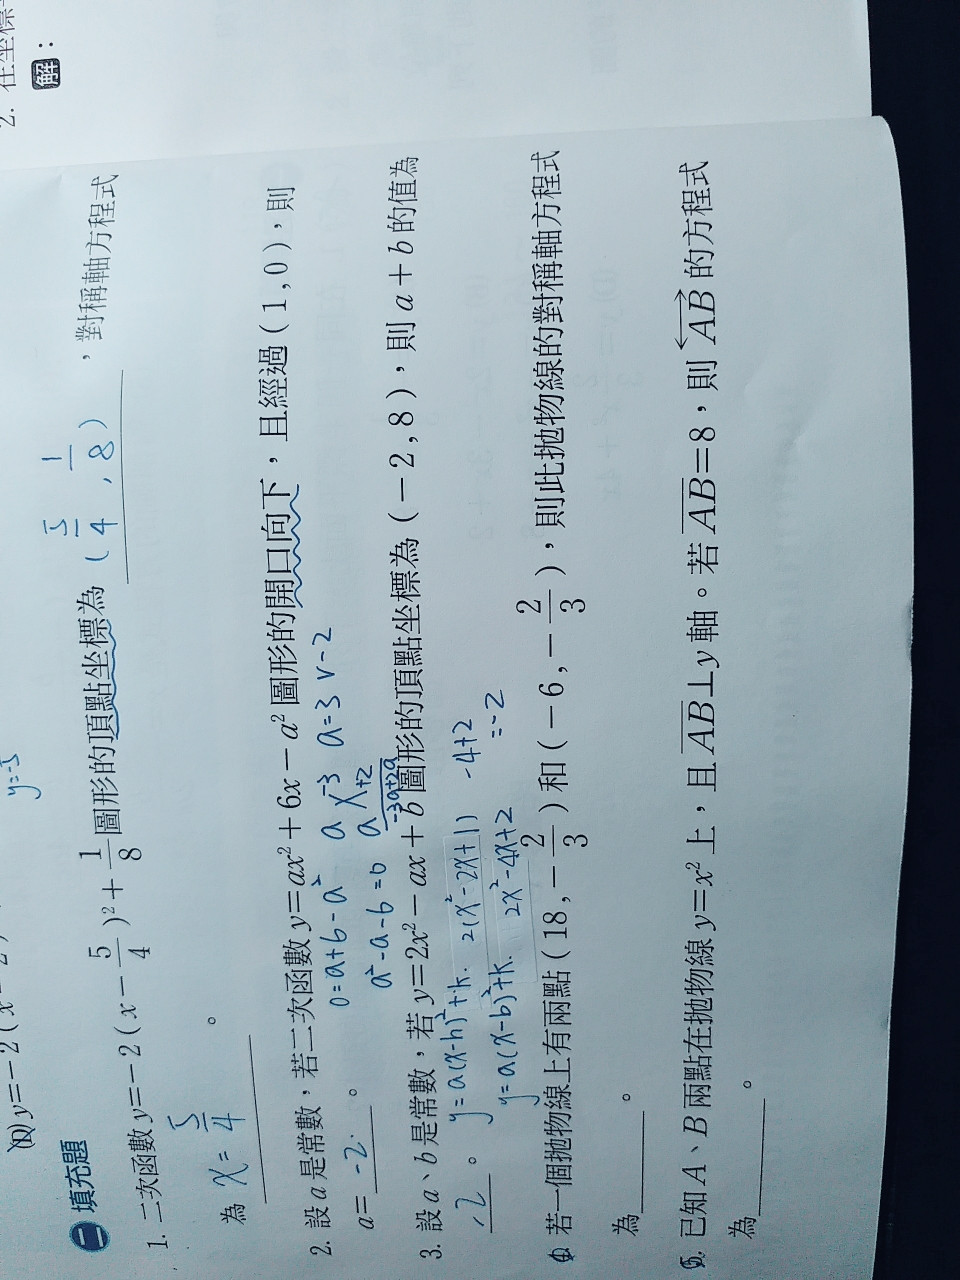 2. 在坐標
解：
y=-5
(D) y=-2(x-2
二 填充題
1. 二次函數 y=-2(x-5/4)²+1/8 圖形的頂點坐標為 (5/4, 1/8) ，對稱軸方程式
為 x=5/4 。
2. 設 a 是常數，若二次函數 y=ax²+6x-a² 圖形的開口向下，且經過(1,0)，則
0=a+6-a² a -3 a=3 v -2
a=-2. 。 a²-a-6=0 a +2
-3a+2a
3. 設 a、b 是常數，若 y=2x²-ax+b 圖形的頂點坐標為(-2,8)，則 a+b 的值為
-2 。 y=a(x-h)²+k. 2(x²-2x+1) -4+2
y=a(x-b)²+k. 2x²-4x+2 =-2
4. 若一個拋物線上有兩點(18,-2/3)和(-6,-2/3)，則此拋物線的對稱軸方程式
為 。
5. 已知 A、B 兩點在拋物線 y=x² 上，且 AB⊥y 軸。若 AB=8，則 AB 的方程式
為 。